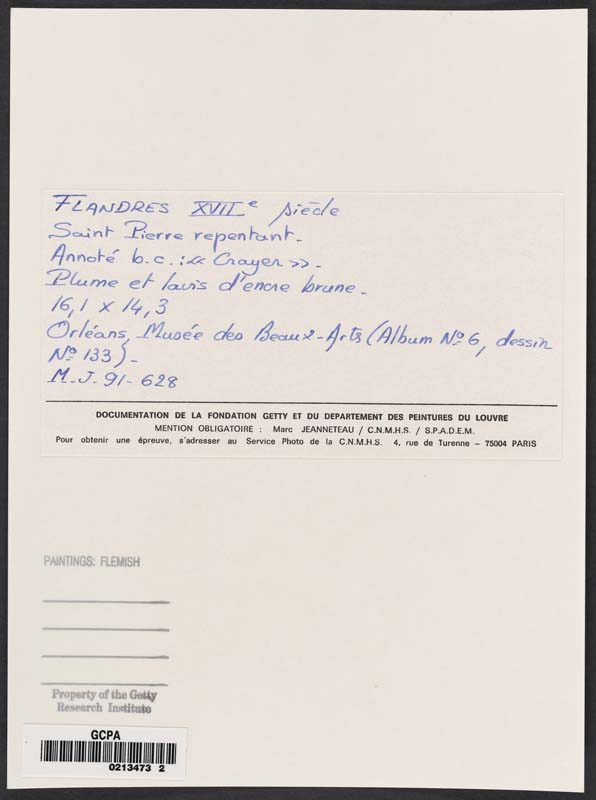 FLANDRES XVIIe siècle
Saint Pierre repentant.
Annoté b.c. : « Crayer ».
Plume et lavis d'encre brune.
16,1 x 14,3
Orléans, Musée des Beaux-Arts (Album Nº 6, dessin
Nº 133).
M.J. 91-628
DOCUMENTATION DE LA FONDATION GETTY ET DU DEPARTEMENT DES PEINTURES DU LOUVRE
MENTION OBLIGATOIRE : Marc JEANNETEAU / C.N.M.H.S. / S.P.A.D.E.M.
Pour obtenir une épreuve, s'adresser au Service Photo de la C.N.M.H.S. 4, rue de Turenne – 75004 PARIS
PAINTINGS: FLEMISH
Property of the Getty
Research Institute
GCPA
0213473 2